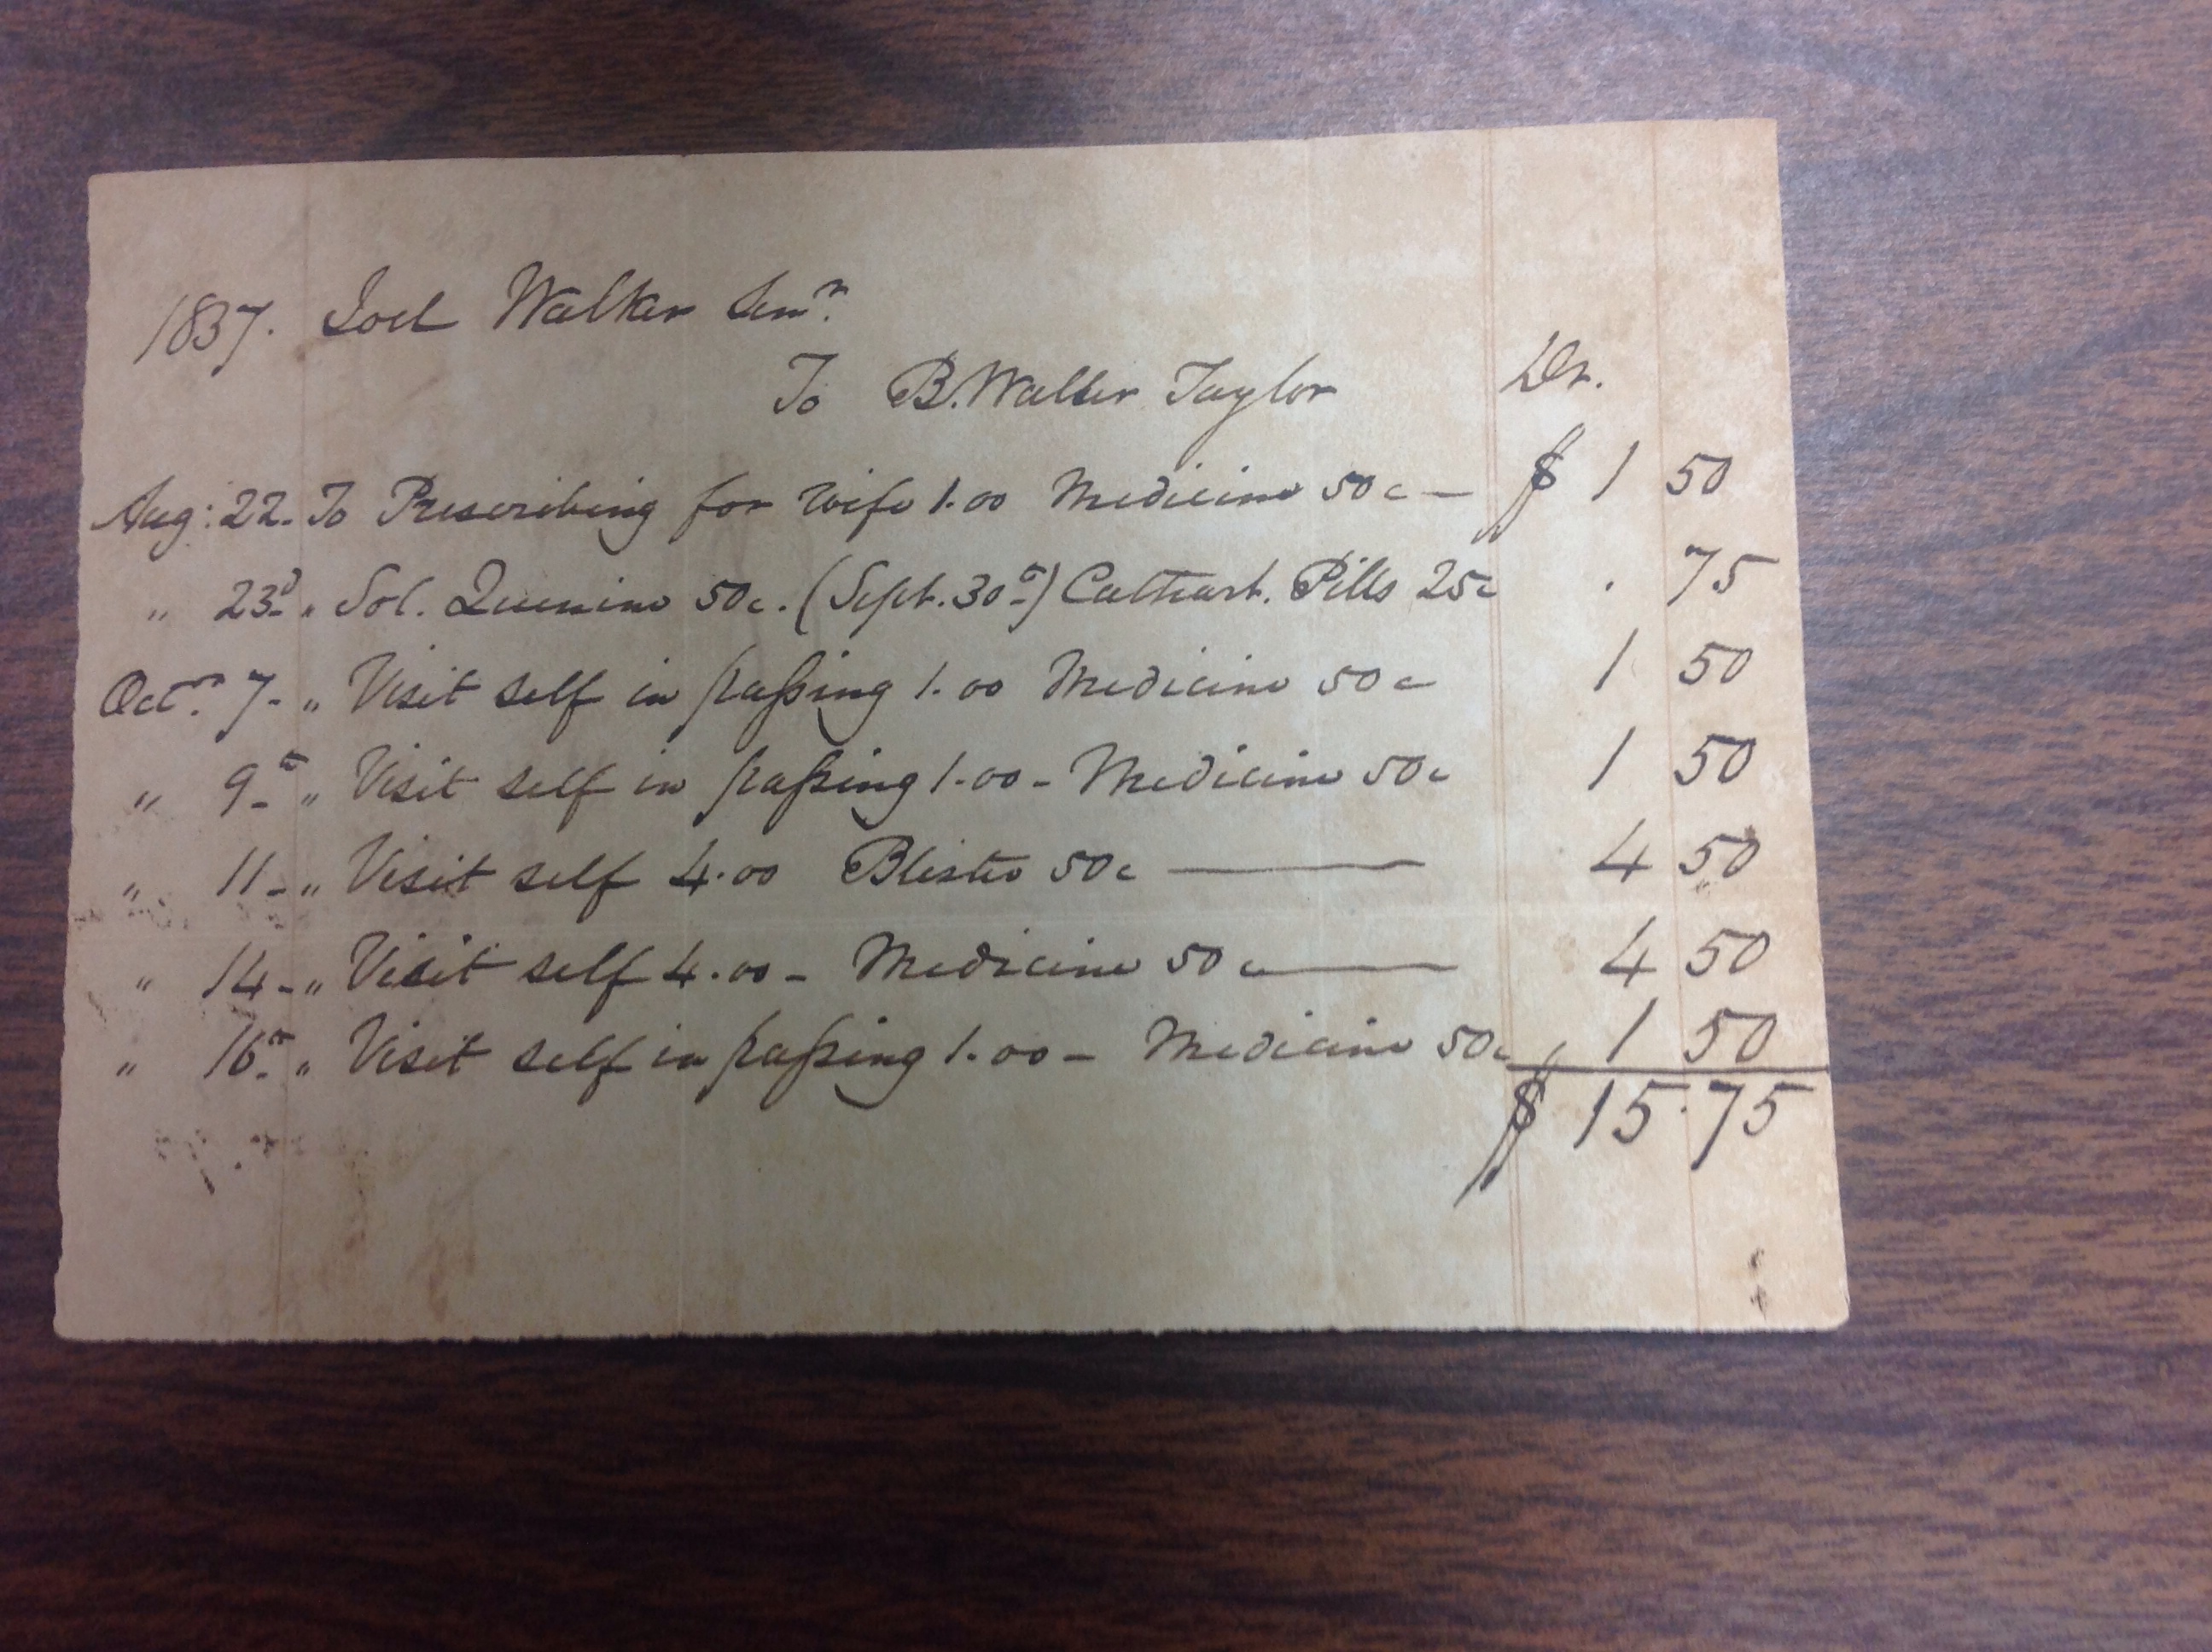 1837. Joel Walker Senr.
To B. Walker Taylor Dr.
Aug: 22. To Prescribing for wife 1.00 Medicine 50c — $ 1 50
" 23d " Sol. Quinine 50c. (Sept. 30th) Cathart. Pills 25c . 75
Octr. 7 - " Visit self in passing 1.00 Medicine 50c 1 50
" 9th " Visit self in passing 1.00 - Medicine 50c 1 50
" 11 - " Visit self 4.00 Blister 50c — 4 50
" 14 - " Visit self 4.00 - Medicine 50c — 4 50
" 16th " Visit self in passing 1.00 - Medicine 50c 1 50
$ 15.75